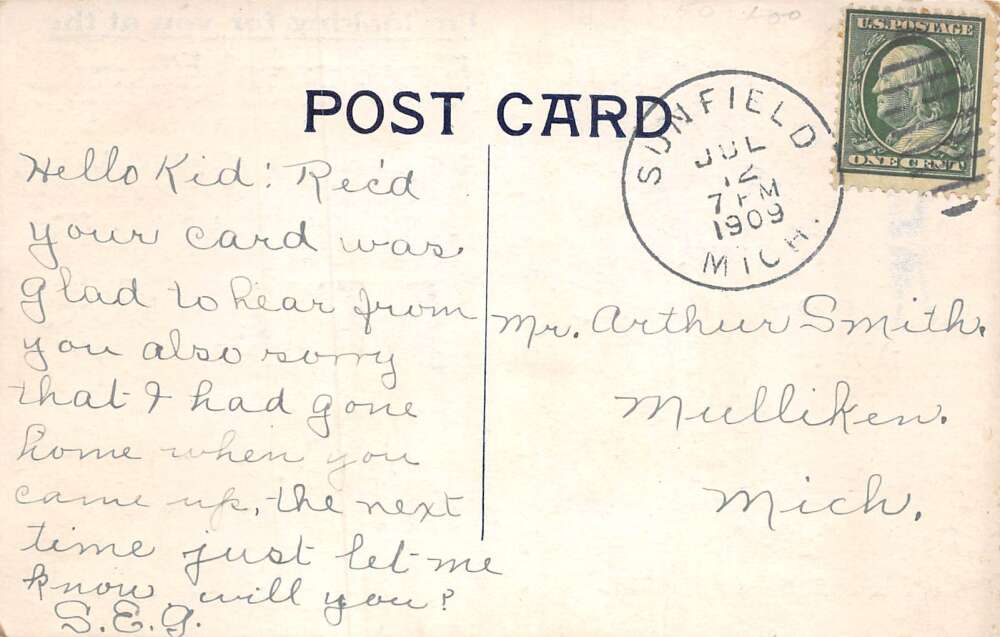 POST CARD
U.S. POSTAGE
ONE CENT
SUNFIELD
JUL
12
7 PM
1909
MICH.
Hello Kid: Rec'd
your card was
glad to hear from
you also sorry
that I had gone
home when you
came up, the next
time just let me
know will you?
S.E.G.
Mr. Arthur Smith.
Mulliken.
Mich.